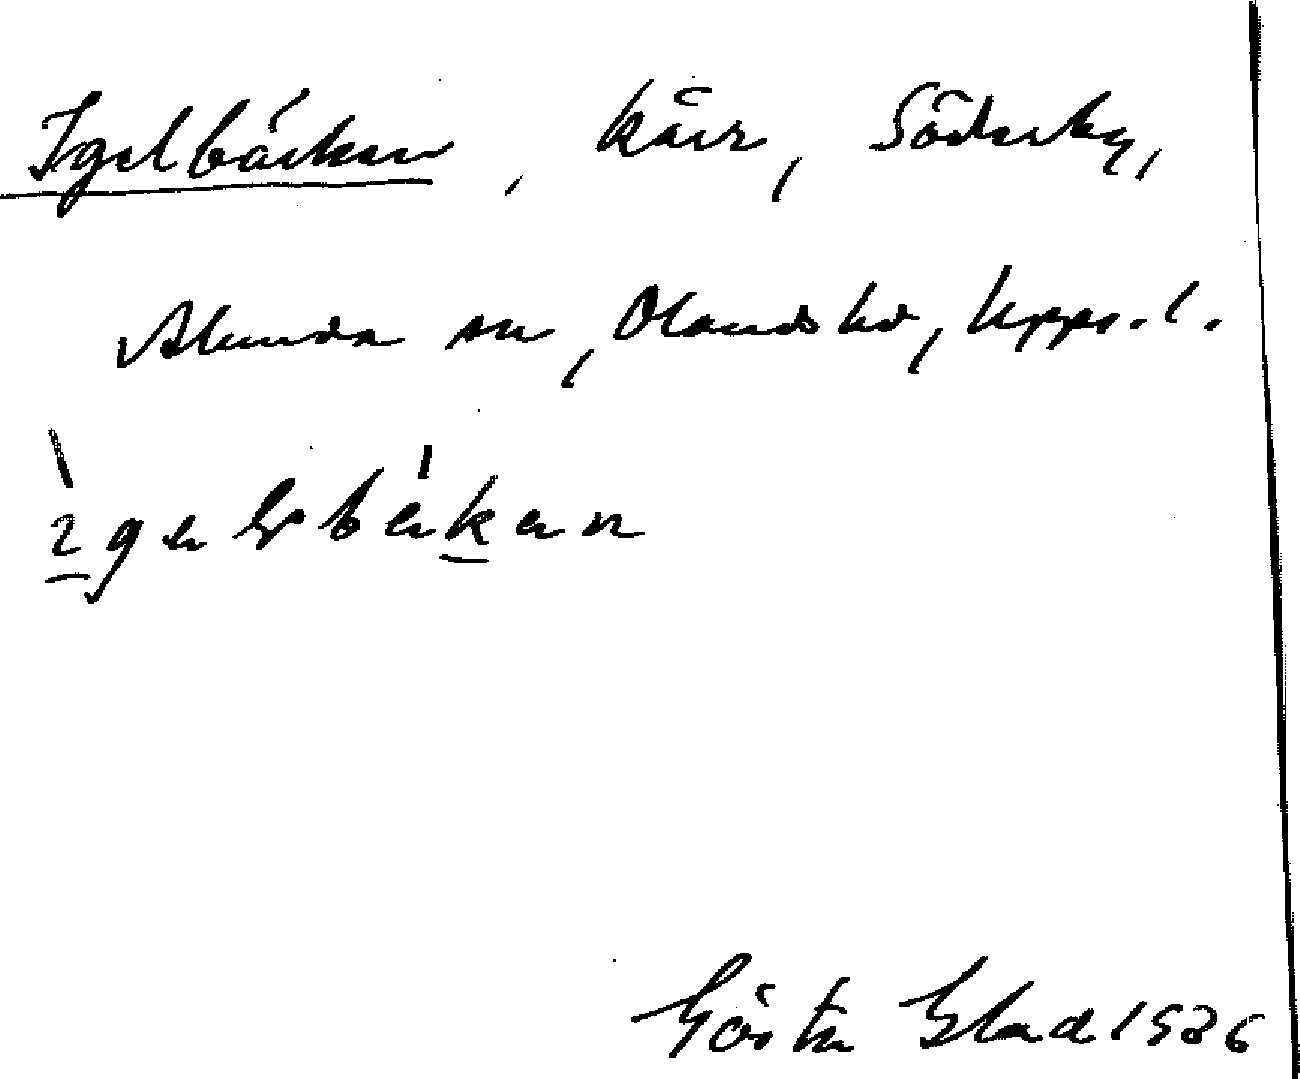 Igelbäcken, kärr, Söderby,
Alunda sn, Olands hd, Upps. l.
Gösta Elad 1936